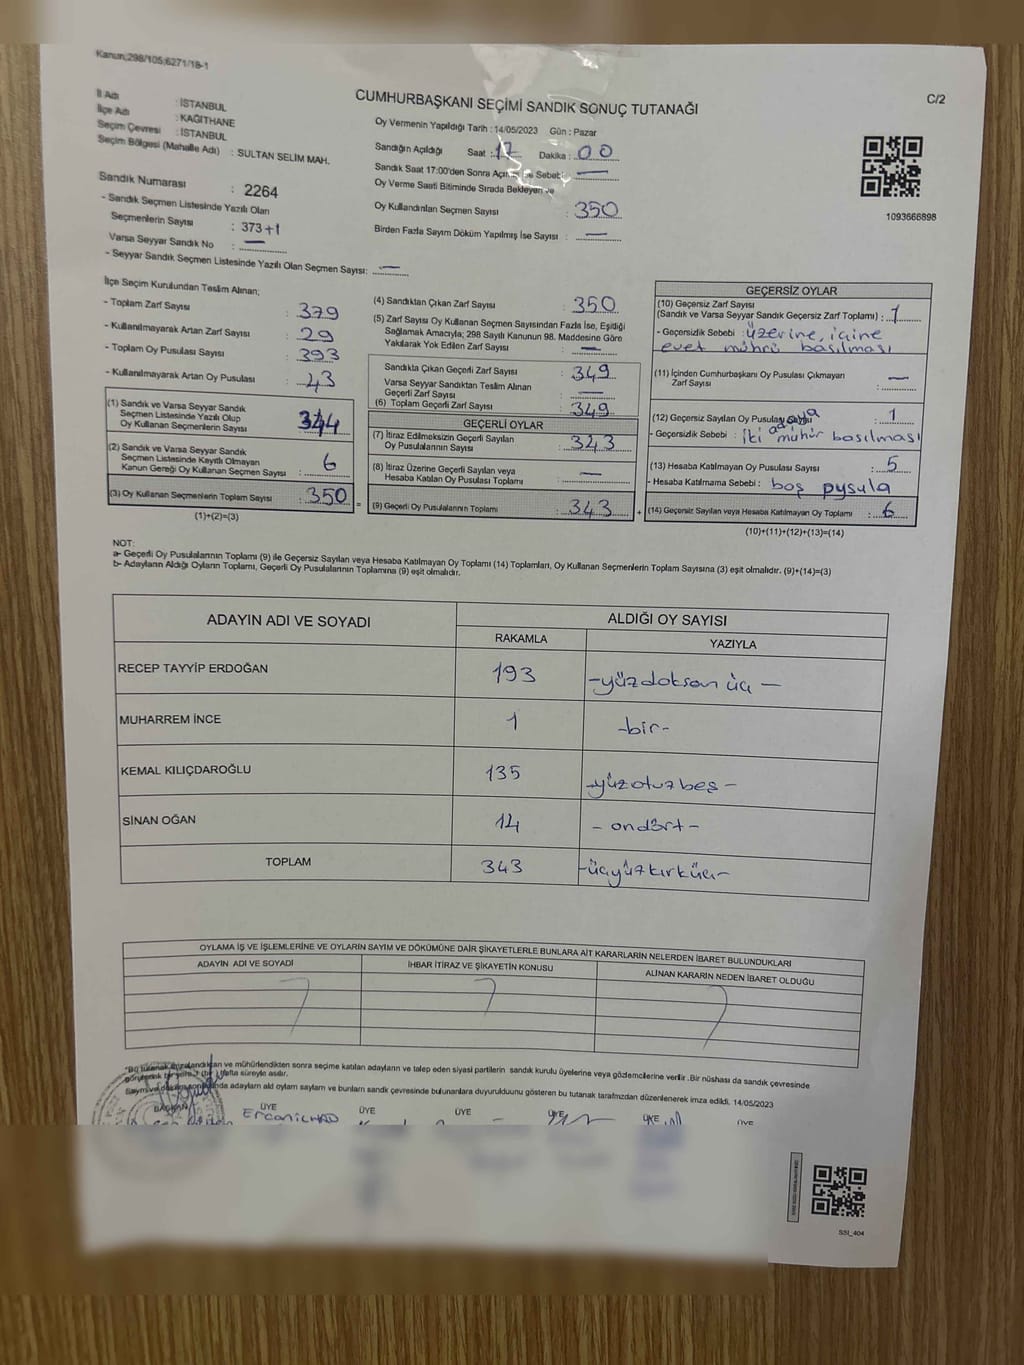 Kanun;298/105;6271/18-1
C/2
CUMHURBAŞKANI SEÇİMİ SANDIK SONUÇ TUTANAĞI
İl Adı : İSTANBUL
İlçe Adı : KAĞITHANE
Seçim Çevresi : İSTANBUL
Seçim Bölgesi (Mahalle Adı) : SULTAN SELİM MAH.
Sandık Numarası : 2264
- Sandık Seçmen Listesinde Yazılı Olan
Seçmenlerin Sayısı : 373+1
Varsa Seyyar Sandık No : —
- Seyyar Sandık Seçmen Listesinde Yazılı Olan Seçmen Sayısı: —
Oy Vermenin Yapıldığı Tarih : 14/05/2023 Gün : Pazar
Sandığın Açıldığı Saat : 17 Dakika : 00
Sandık Saat 17:00'den Sonra Sebebi : —
Oy Verme Saati Bitiminde Sırada Bekleyen ve
Oy Kullandırılan Seçmen Sayısı : 350
Birden Fazla Sayım Döküm Yapılmış İse Sayısı : —
1093666898
İlçe Seçim Kurulundan Teslim Alınan;
- Toplam Zarf Sayısı : 379
- Kullanılmayarak Artan Zarf Sayısı : 29
- Toplam Oy Pusulası Sayısı : 393
- Kullanılmayarak Artan Oy Pusulası : 43
(1) Sandık ve Varsa Seyyar Sandık
Seçmen Listesinde Yazılı Olup
Oy Kullanan Seçmenlerin Sayısı : 344
(2) Sandık ve Varsa Seyyar Sandık
Seçmen Listesinde Kayıtlı Olmayan
Kanun Gereği Oy Kullanan Seçmen Sayısı : 6
(3) Oy Kullanan Seçmenlerin Toplam Sayısı : 350
(1)+(2)=(3)
(4) Sandıktan Çıkan Zarf Sayısı : 350
(5) Zarf Sayısı Oy Kullanan Seçmen Sayısından Fazla İse, Eşitliği
Sağlamak Amacıyla; 298 Sayılı Kanunun 98. Maddesine Göre
Yakılarak Yok Edilen Zarf Sayısı : —
Sandıkta Çıkan Geçerli Zarf Sayısı : 349
Varsa Seyyar Sandıktan Teslim Alınan
Geçerli Zarf Sayısı : —
(6) Toplam Geçerli Zarf Sayısı : 349
GEÇERLİ OYLAR
(7) İtiraz Edilmeksizin Geçerli Sayılan
Oy Pusulalarının Sayısı : 343
(8) İtiraz Üzerine Geçerli Sayılan veya
Hesaba Katılan Oy Pusulası Toplamı : —
(9) Geçerli Oy Pusulalarının Toplamı : 343
GEÇERSİZ OYLAR
(10) Geçersiz Zarf Sayısı
(Sandık ve Varsa Seyyar Sandık Geçersiz Zarf Toplamı) : 1
- Geçersizlik Sebebi : üzerine, içine
evet mührü basılması
(11) İçinden Cumhurbaşkanı Oy Pusulası Çıkmayan
Zarf Sayısı : —
(12) Geçersiz Sayılan Oy Pusulası Sayısı : 1
- Geçersizlik Sebebi : iki adaya mühür basılması
(13) Hesaba Katılmayan Oy Pusulası Sayısı : 5
- Hesaba Katılmama Sebebi : boş pysula
(14) Geçersiz Sayılan veya Hesaba Katılmayan Oy Toplamı : 6
(10)+(11)+(12)+(13)=(14)
NOT:
a- Geçerli Oy Pusulalarının Toplamı (9) ile Geçersiz Sayılan veya Hesaba Katılmayan Oy Toplamı (14) Toplamları, Oy Kullanan Seçmenlerin Toplam Sayısına (3) eşit olmalıdır. (9)+(14)=(3)
b- Adayların Aldığı Oyların Toplamı, Geçerli Oy Pusulalarının Toplamına (9) eşit olmalıdır.
ADAYIN ADI VE SOYADI ALDIĞI OY SAYISI
RAKAMLA YAZIYLA
RECEP TAYYİP ERDOĞAN 193 -yüzdoksan üç-
MUHARREM İNCE 1 -bir-
KEMAL KILIÇDAROĞLU 135 -yüzotuzbeş-
SİNAN OĞAN 14 -ondört-
TOPLAM 343 -üçyüzkırküç-
OYLAMA İŞ VE İŞLEMLERİNE VE OYLARIN SAYIM VE DÖKÜMÜNE DAİR ŞİKAYETLERLE BUNLARA AİT KARARLARIN NELERDEN İBARET BULUNDUKLARI
ADAYIN ADI VE SOYADI İHBAR İTİRAZ VE ŞİKAYETİN KONUSU ALINAN KARARIN NEDEN İBARET OLDUĞU
"Bu tutanak imzalandıktan ve mühürlendikten sonra seçime katılan adayların ve talep eden siyasi partilerin sandık kurulu üyelerine veya gözlemcilerine verilir. Bir nüshası da sandık çevresinde
görülebilir bir yere 1 (bir) hafta süreyle asılır.
Sayım ve döküm sonunda adayların aldığı oyların sayısını ve bunların sandık çevresinde bulunanlara duyurulduğunu gösteren bu tutanak tarafımızdan düzenlenerek imza edildi. 14/05/2023
BAŞKAN ÜYE ÜYE ÜYE ÜYE ÜYE ÜYE
SSI_404